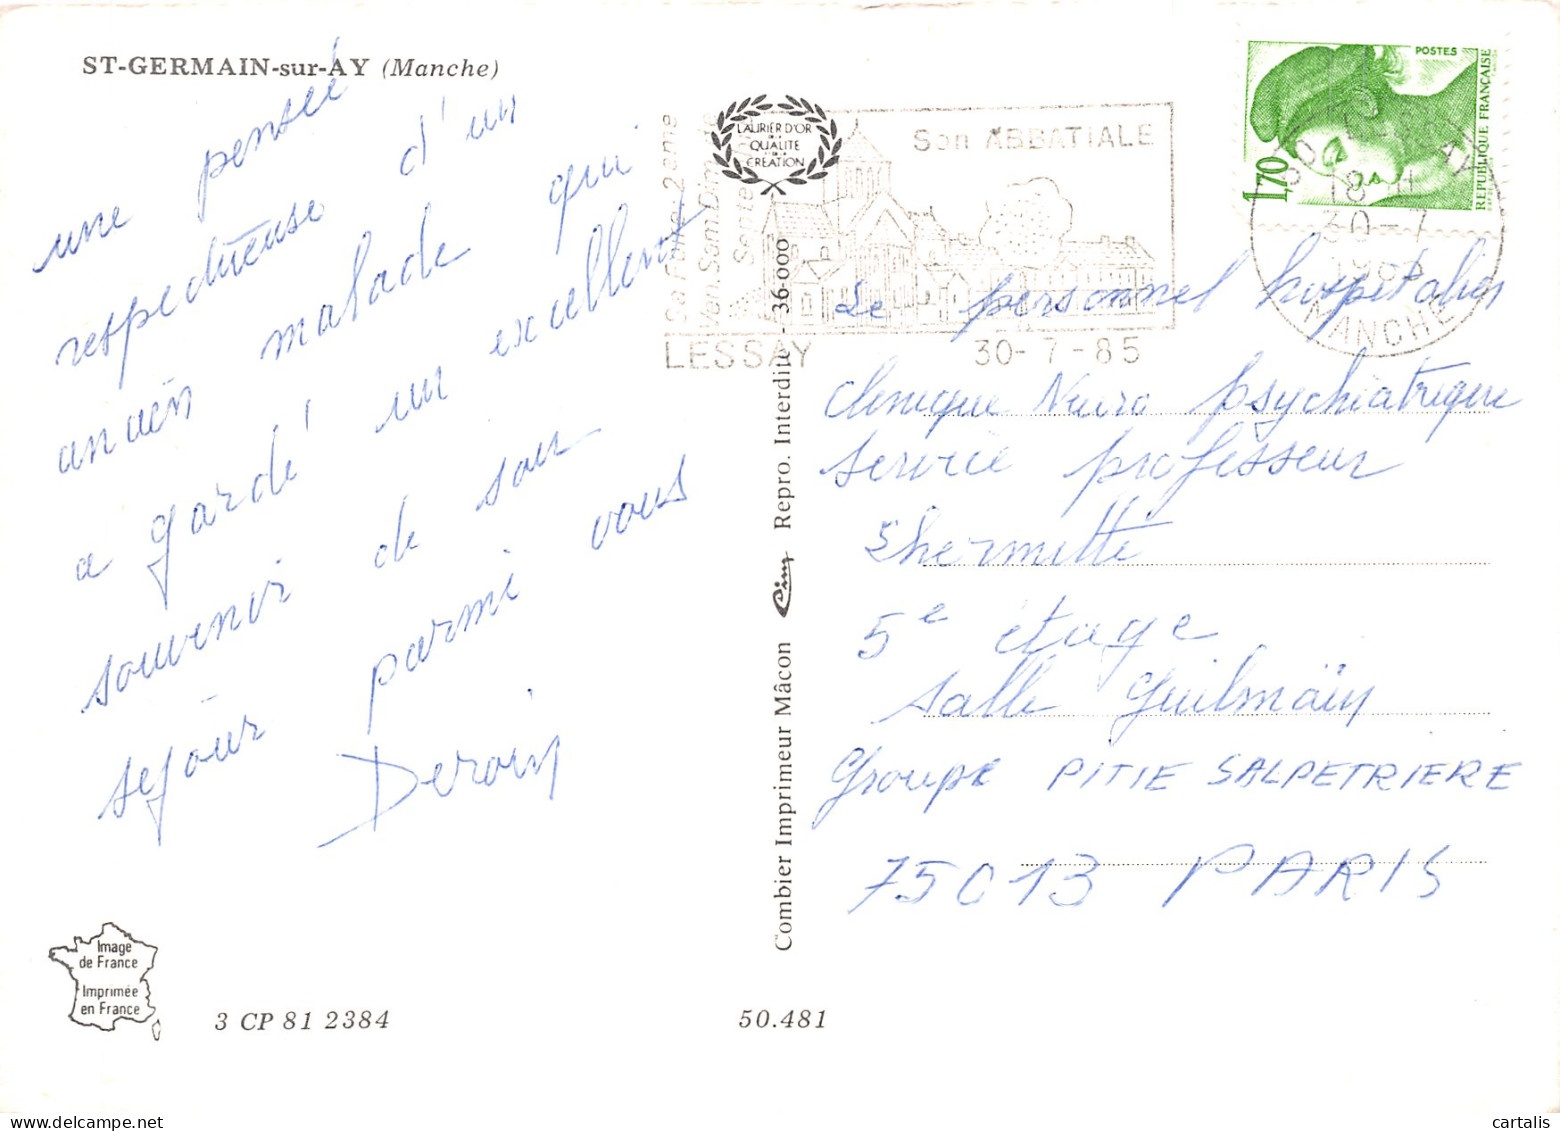 ST-GERMAIN-sur-AY (Manche)
une pensée
respectueuse d'un
ancien malade qui
a gardé un excellent
souvenir de son
sejour parmi vous
Deroin
Image
de France
Imprimée
en France
3 CP 81 2384
50.481
Combier Imprimeur Mâcon Cim Repro. Interdite - 36-000
LAURIER D'OR
DE LA
QUALITE
ET DE LA
CREATION
Sa Foire 2eme
Ven. Sam. Dim. de
Septembre
Son ABBATIALE
LESSAY 30-7-85
POSTES
REPUBLIQUE FRANÇAISE
1,70
50 LESSAY
18 H
30-7
1985
MANCHE
Le personnel hospitalier
clinique Neuro psychiatrique
service professeur
Shermitte
5e étage
salle Guilmain
Groupe PITIE SALPETRIERE
75013 PARIS
cartalis